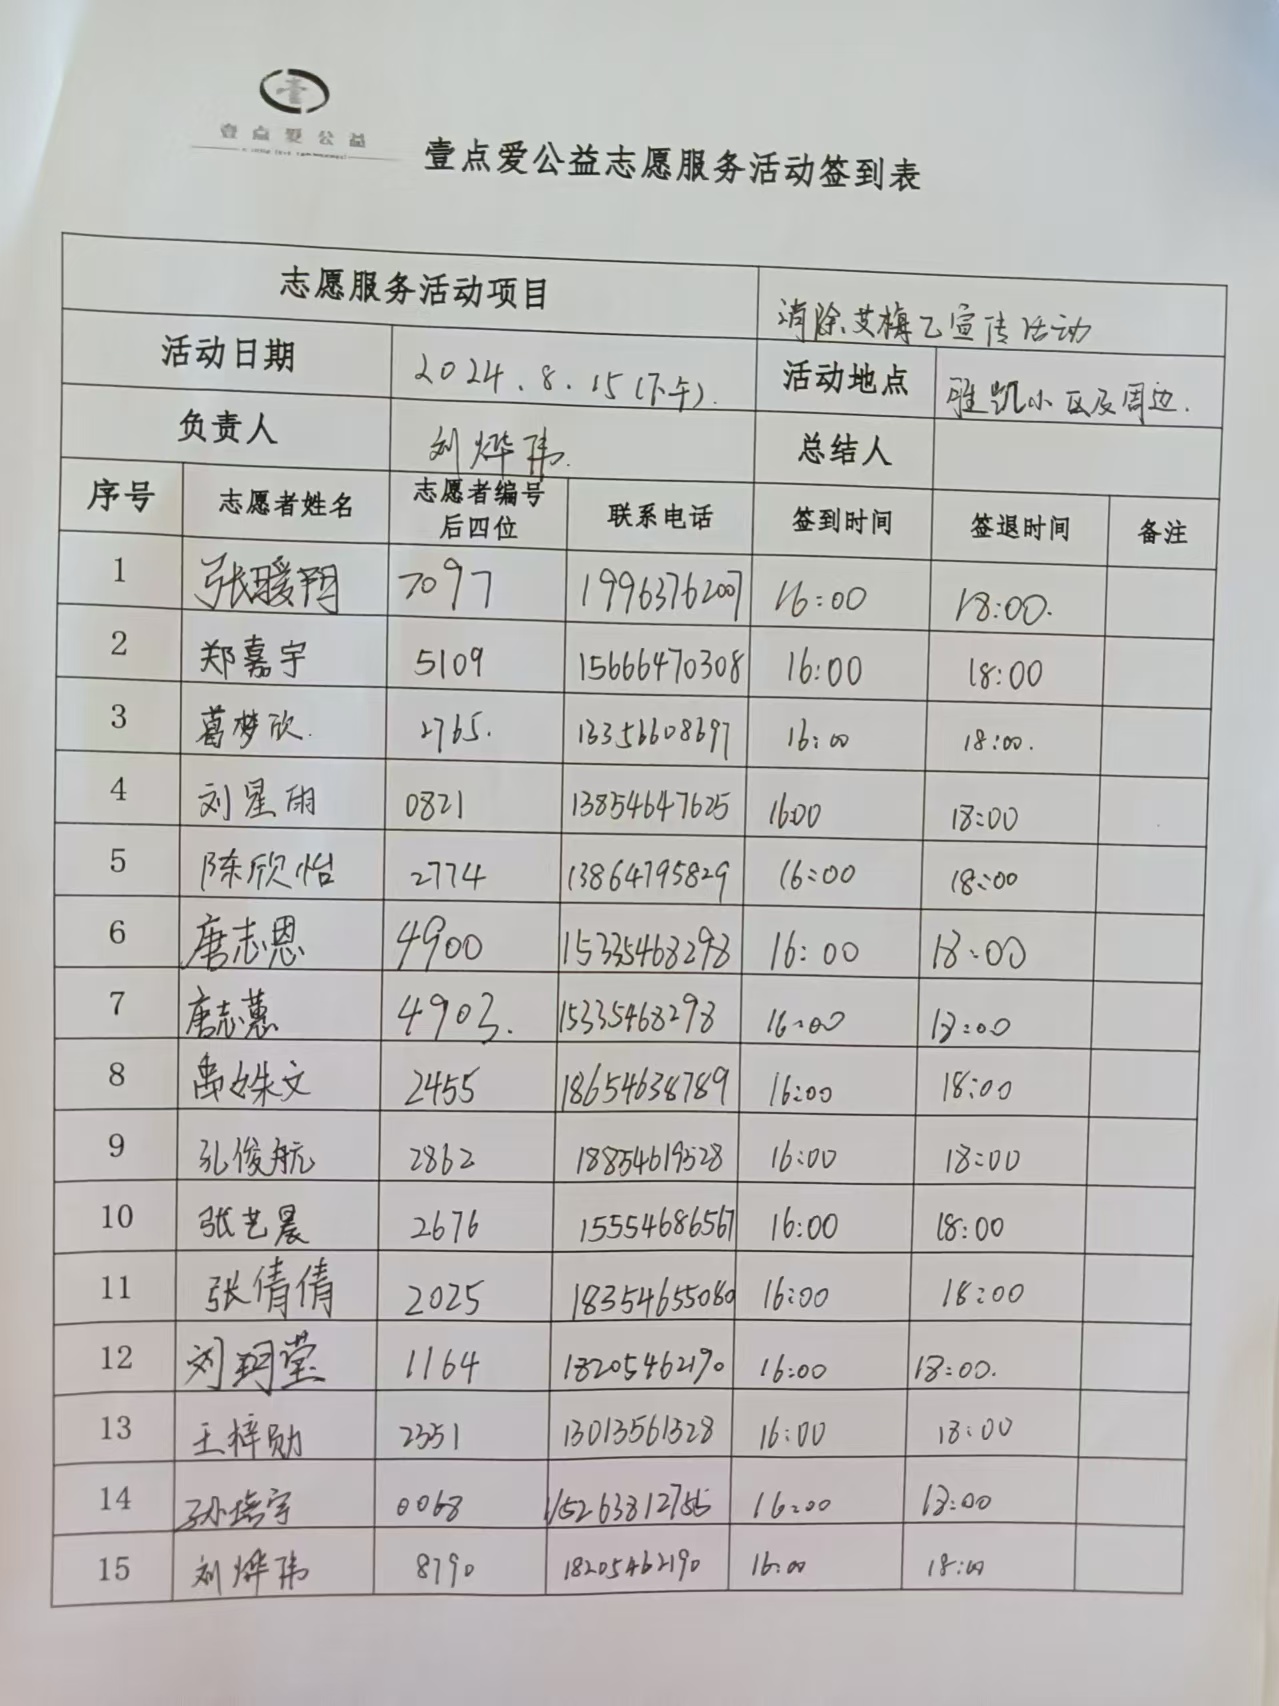 壹点爱公益
壹点爱公益志愿服务活动签到表
志愿服务活动项目 消除艾梅乙宣传活动
活动日期 2024.8.15(下午). 活动地点 雅凯小区及周边.
负责人 刘烨玮. 总结人
序号 志愿者姓名 志愿者编号后四位 联系电话 签到时间 签退时间 备注
1 张暖阳 7097 19963762007 16:00 18:00.
2 郑嘉宇 5109 15666470308 16:00 18:00
3 葛梦欣. 2765. 13356608697 16:00 18:00.
4 刘星雨 0821 13854647625 16:00 18:00
5 陈欣怡 2774 13864795829 16:00 18:00
6 唐志恩 4900 15335468298 16:00 18:00
7 唐志蕙 4903. 15335468298 16:00 18:00
8 禹姝文 2455 18654638789 16:00 18:00
9 孔俊航 2862 18854619528 16:00 18:00
10 张艺晨 2676 15554686567 16:00 18:00
11 张倩倩 2025 18354655080 16:00 18:00
12 刘珂莹 1164 18205462190 16:00 18:00.
13 王梓勋 2351 13013561328 16:00 18:00
14 0068 16:00 18:00
15 刘烨玮 8790 18205462190 16:00 18:00